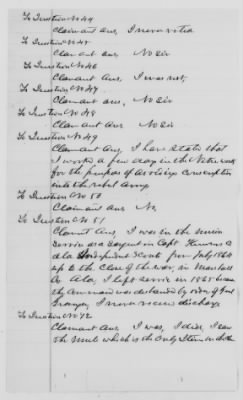 To Question No 44
Claimant Ans, I never voted
To Question No 45
Claimant ans No Sir
To Question No 46
Claimant Ans, I was not,
To Question No 47
Claimant ans, No Sir
To Question No 48
Claimant Ans No Sir
To Question No 49
Claimant Ans, I have stated that
I worked a few days in the Nitre work
for the purpose of avoiding conscription
into the rebel army
To Question No 50
Claimant ans No
To Question No 51
Claimt Ans, I was in the Union
Service as a Sergent in Capt
Ala Independent Scouts from July 1864
up to the Close of the war, in Marshall
Co Ala, I left service in 1865 when
the command was disbanded by order of Genl
Granger, I never received discharge
To Question No 72
Claimant Ans, I was, I did, I saw
the Mule which is the Only Item in